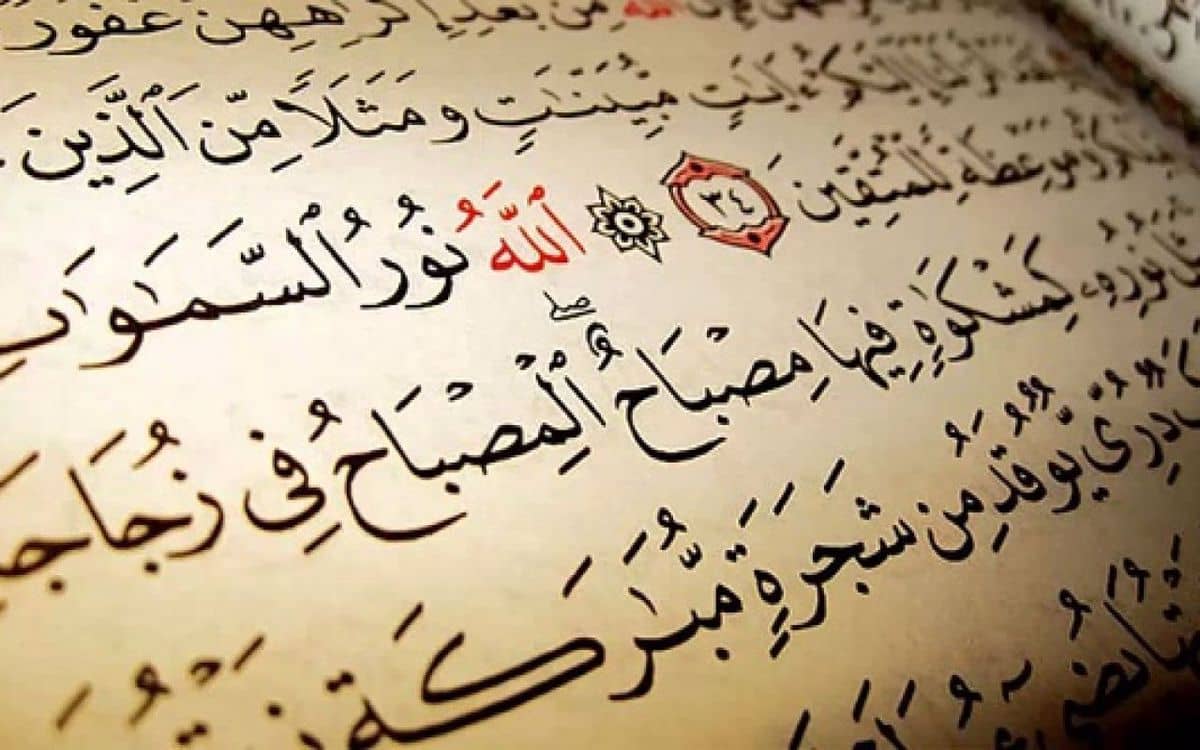 مِنۢ بَعْدِ إِكْرَٰهِهِنَّ غَفُورٌ
إِلَيْكُمْ ءَايَٰتٍ مُّبَيِّنَٰتٍ وَمَثَلًا مِّنَ ٱلَّذِينَ
وَمَوْعِظَةً لِّلْمُتَّقِينَ ٣٤ ٱللَّهُ نُورُ ٱلسَّمَٰوَٰتِ
نُورِهِۦ كَمِشْكَوٰةٍ فِيهَا مِصْبَاحٌ ۖ ٱلْمِصْبَاحُ فِى زُجَاجَ
دُرِّىٌّ يُوقَدُ مِن شَجَرَةٍ مُّبَٰرَكَةٍ
يُضِىٓءُ